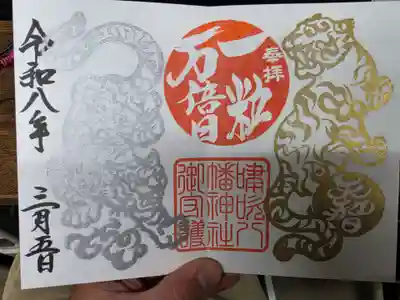 奉拝
一粒
万倍日
嘯吹八
幡神社
御守護
令和八年
三月五日